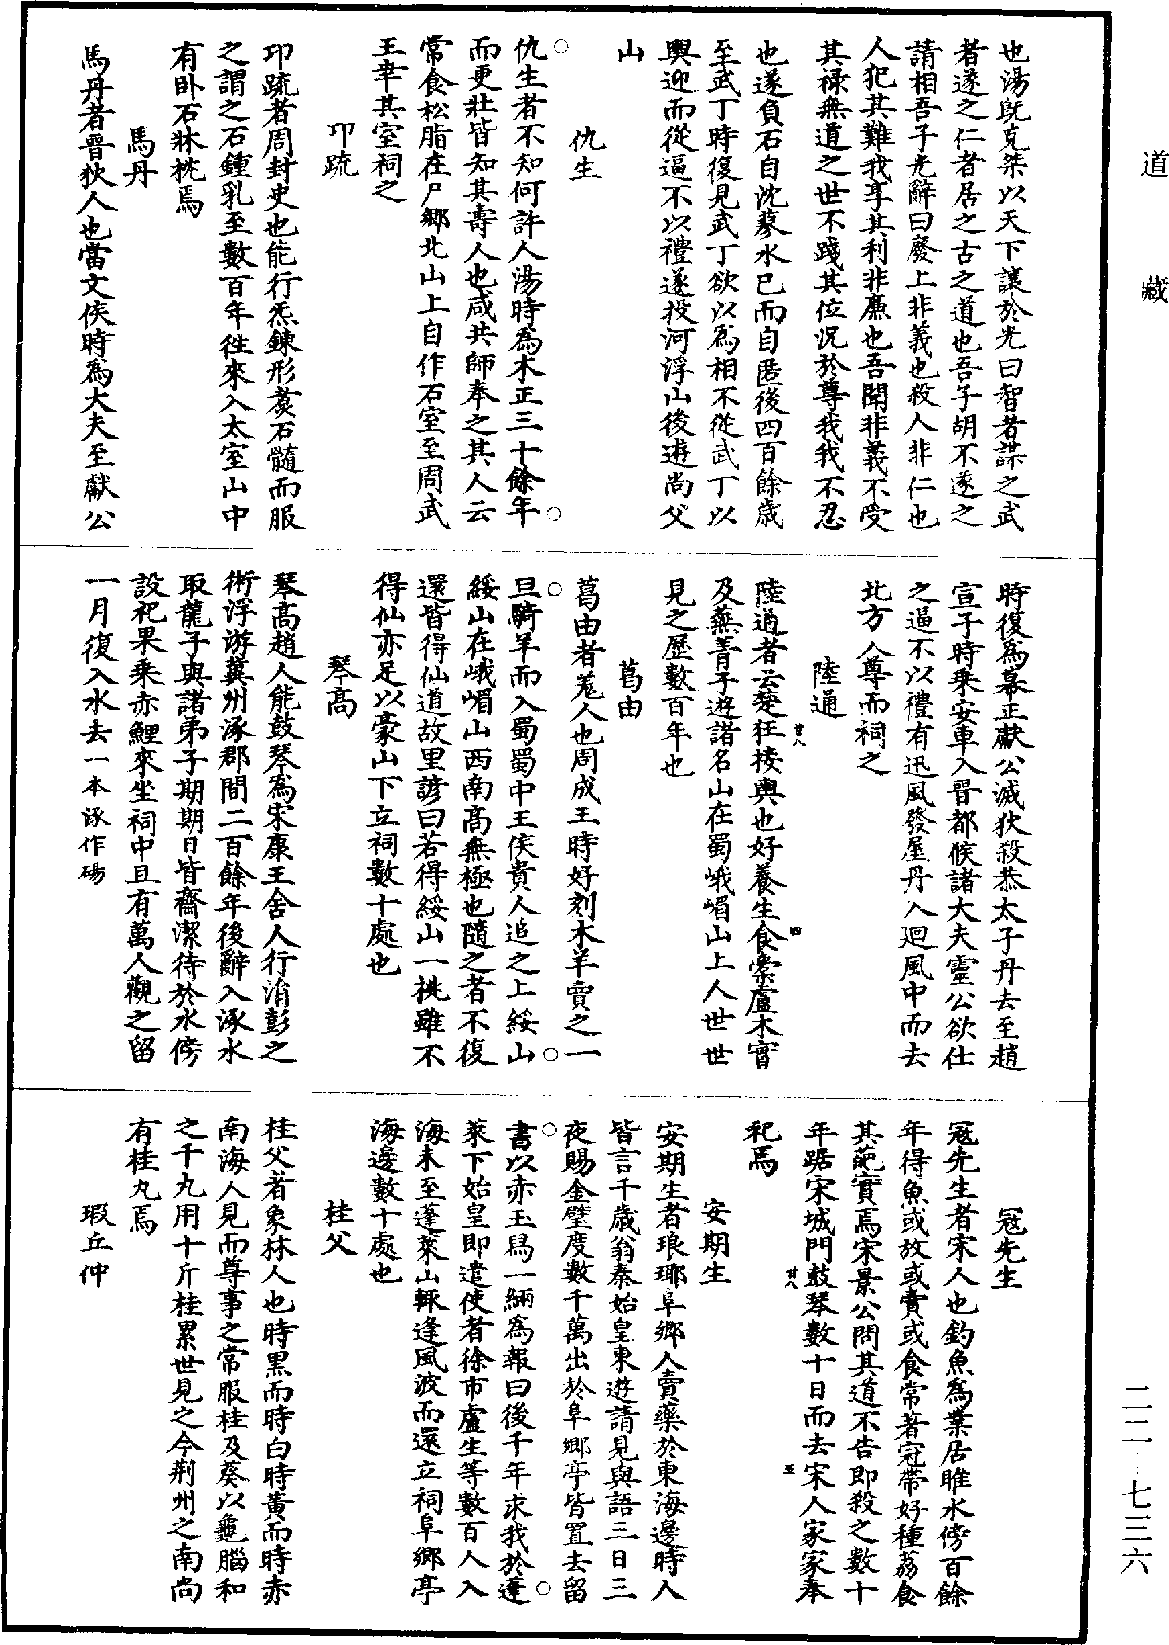 道藏
二二-七三六
也湯既克桀以天下讓於光曰智者謀之武
者遂之仁者居之古之道也吾子胡不遂之
請相吾子光辭曰廢上非義也殺人非仁也
人犯其難我享其利非廉也吾聞非義不受
其祿無道之世不踐其位況於尊我我不忍
也遂負石自沈蓼水已而自匿後四百餘歲
至武丁時復見武丁欲以爲相不從武丁以
輿迎而從逼不以禮遂投河浮山後遊尚父
山
仇生
仇生者不知何許人湯時爲木正三十餘年
而更壯皆知其壽人也咸共師奉之其人云
常食松脂在尸鄉北山上自作石室至周武
王幸其室祠之
卭疏
卭疏者周封史也能行炁鍊形煑石髓而服
之謂之石鍾乳至數百年往來入太室山中
有卧石牀枕焉
馬丹
馬丹者晉狄人也當文侯時爲大夫至獻公
時復爲幕正獻公滅狄殺恭太子丹去至趙
宣子時乘安車入晉都候諸大夫靈公欲仕
之逼不以禮有迅風發屋丹入迴風中而去
北方人尊而祠之
陸通
陸通者云楚狂接輿也好養生食橐盧木實
及蕪菁子遊諸名山在蜀峨嵋山上人世世
見之歷數百年也
葛由
葛由者羌人也周成王時好刻木羊賣之一
旦騎羊而入蜀蜀中王侯貴人追之上綏山
綏山在峨嵋山西南高無極也隨之者不復
還皆得仙道故里諺曰若得綏山一桃雖不
得仙亦足以豪山下立祠數十處也
琴高
琴高趙人能鼓琴爲宋康王舍人行涓彭之
術浮游冀州涿郡間二百餘年後辭入涿水
取龍子與諸弟子期期日皆齋潔待於水傍
設祀果乘赤鯉來坐祠中且有萬人觀之留
一月復入水去一本涿作碭
冦先生
冦先生者宋人也釣魚爲業居睢水傍百餘
年得魚或放或賣或食常著冠帶好種荔食
其葩實焉宋景公問其道不告即殺之數十
年踞宋城門鼓琴數十日而去宋人家家奉
祀焉
安期生
安期生者琅琊阜鄉人賣藥於東海邊時人
皆言千歲翁秦始皇東遊請見與語三日三
夜賜金璧度數千萬出於阜鄉亭皆置去留
書以赤玉舄一緉爲報曰後千年求我於蓬
萊下始皇即遣使者徐市盧生等數百人入
海未至蓬萊山輒逢風波而還立祠阜鄉亭
海邊數十處也
桂父
桂父者象林人也時黑而時白時黃而時赤
南海人見而尊事之常服桂及葵以龜腦和
之千丸用十斤桂累世見之今荆州之南尚
有桂丸焉
瑕丘仲